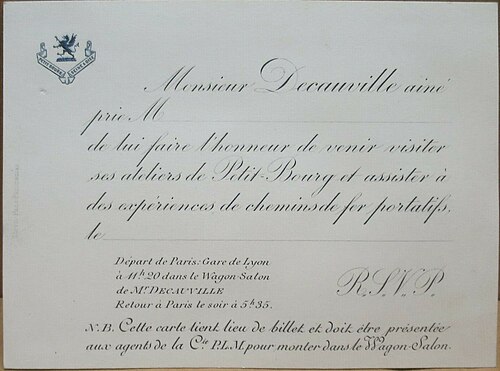 Monsieur Decauville ainé
prie M
de lui faire l'honneur de venir visiter
ses ateliers de Petit-Bourg et assister à
des expériences de chemins de fer portatifs,
le
Départ de Paris: Gare de Lyon
à 11h20 dans le Wagon-Salon
de Mr DECAUVILLE
Retour à Paris le soir à 5h35.
R.S.V.P.
N.B. Cette carte tient lieu de billet et doit être présentée
aux agents de la Cie P.L.M pour monter dans le Wagon-Salon.